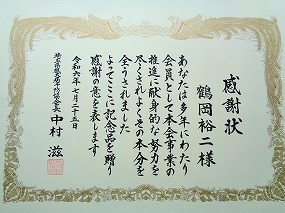 感謝状
鶴岡裕二様
あなたは多年にわたり
会員として本会事業の
推進に献身的な努力を
尽くされよくその本分を
全うされました
よってここに記念品を贈り
感謝の意を表します
令和六年七月二十五日
中村滋